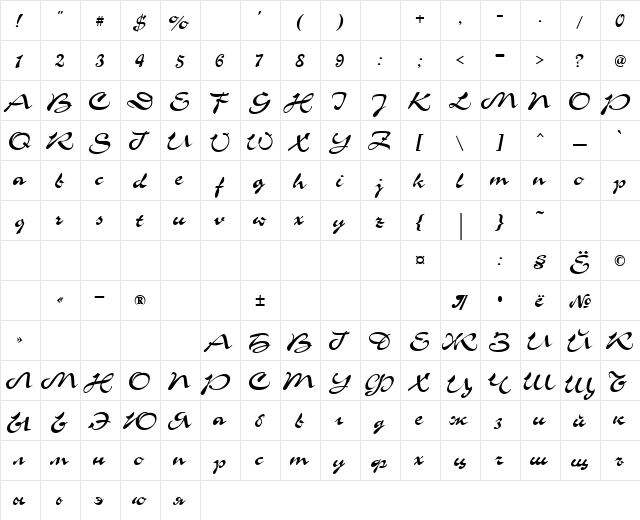 ! " # $ % ' ( ) + , - . / 0
1 2 3 4 5 6 7 8 9 : ; < = > ? @
A B C D E F G H I J K L M N O P
Q R S T U V W X Y Z [ \ ] ^ _ `
a b c d e f g h i j k l m n o p
q r s t u v w x y z { | } ~
¤ : § Ё ©
« - ® ± • ё №
» А Б В Г Д Е Ж З И Й К
Л М Н О П Р С Т У Ф Х Ц Ч Ш Щ Ъ
Ы Ь Э Ю Я а б в г д е ж з и й к
л м н о п р с т у ф х ц ч ш щ ъ
ы ь э ю я